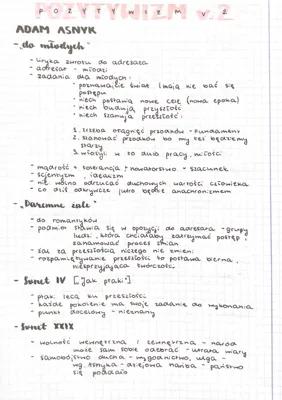 POZYTYWIZM v.2
ADAM ASNYK
- „do młodych"
- liryka zwrotu do adresata
- adresat - młodzi
- zadania dla młodych:
• poznawajcie świat i mają nie bać się
postępu
• niech postawią nowe cele (nowa epoka)
• niech budują przyszłość
• niech szanują przeszłość:
1. trzeba osiągnięć przodków - fundament
2. szanować przodków bo my też będziemy
starzy
3. wiosyli w to dużo pracy, miłości
- mądrość + tolerancja + nowatorstwo - szacunek
- scjentyzm, idealizm
- nie wolno odrzucać duchowych wartości człowieka
- co dziś odkrywcze jutro będzie anachronizmem
- „Daremne żale"
- do romantyków
- podmiot stawia się w opozycji do adresata - grupy
ludzi, która chciałaby zatrzymać postęp,
zahamować proces zmian
- żal za przeszłością niczego nie zmieni
- rozpamiętywanie przeszłości to postawa bierna,
niesprzyjająca twórczości
- Sonet IV [„Jak ptaki"]
- ptaki lecą ku przeszłości
- każde pokolenie ma swoje zadanie do wykonania
- punkt docelowy - nieznany
- Sonet XXIX
- wolność wewnętrzna i zewnętrzna - naród
może sam sobie odebrać - utrata wiary
- samobójstwo ducha - wygodnictwo, ulga -
wg. Asnyka - dziejowa hańba - państwo
się poddało